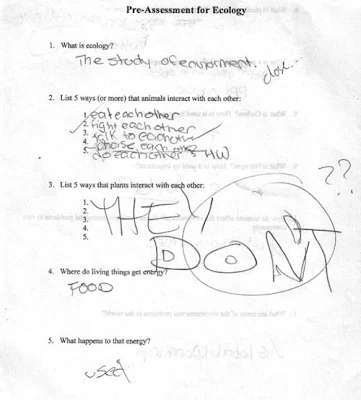 Pre-Assessment for Ecology
1. What is ecology?
The study of enviorment.
close...
2. List 5 ways (or more) that animals interact with each other:
1. eat eachother
2. fight eachother
3. talk to eachother
4. chase each other
5. do eachother's HW
3. List 5 ways that plants interact with each other:
1.
2.
3.
4.
5.
THEY
DONT
??
4. Where do living things get energy?
FOOD
5. What happens to that energy?
used